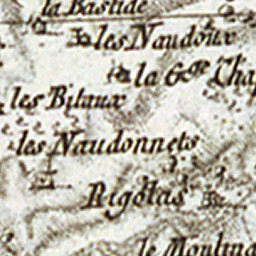 la Bastide
les Naudoux
la Gde Chap
les Bitaux
les Naudonnets
Rigolas
le Moulina